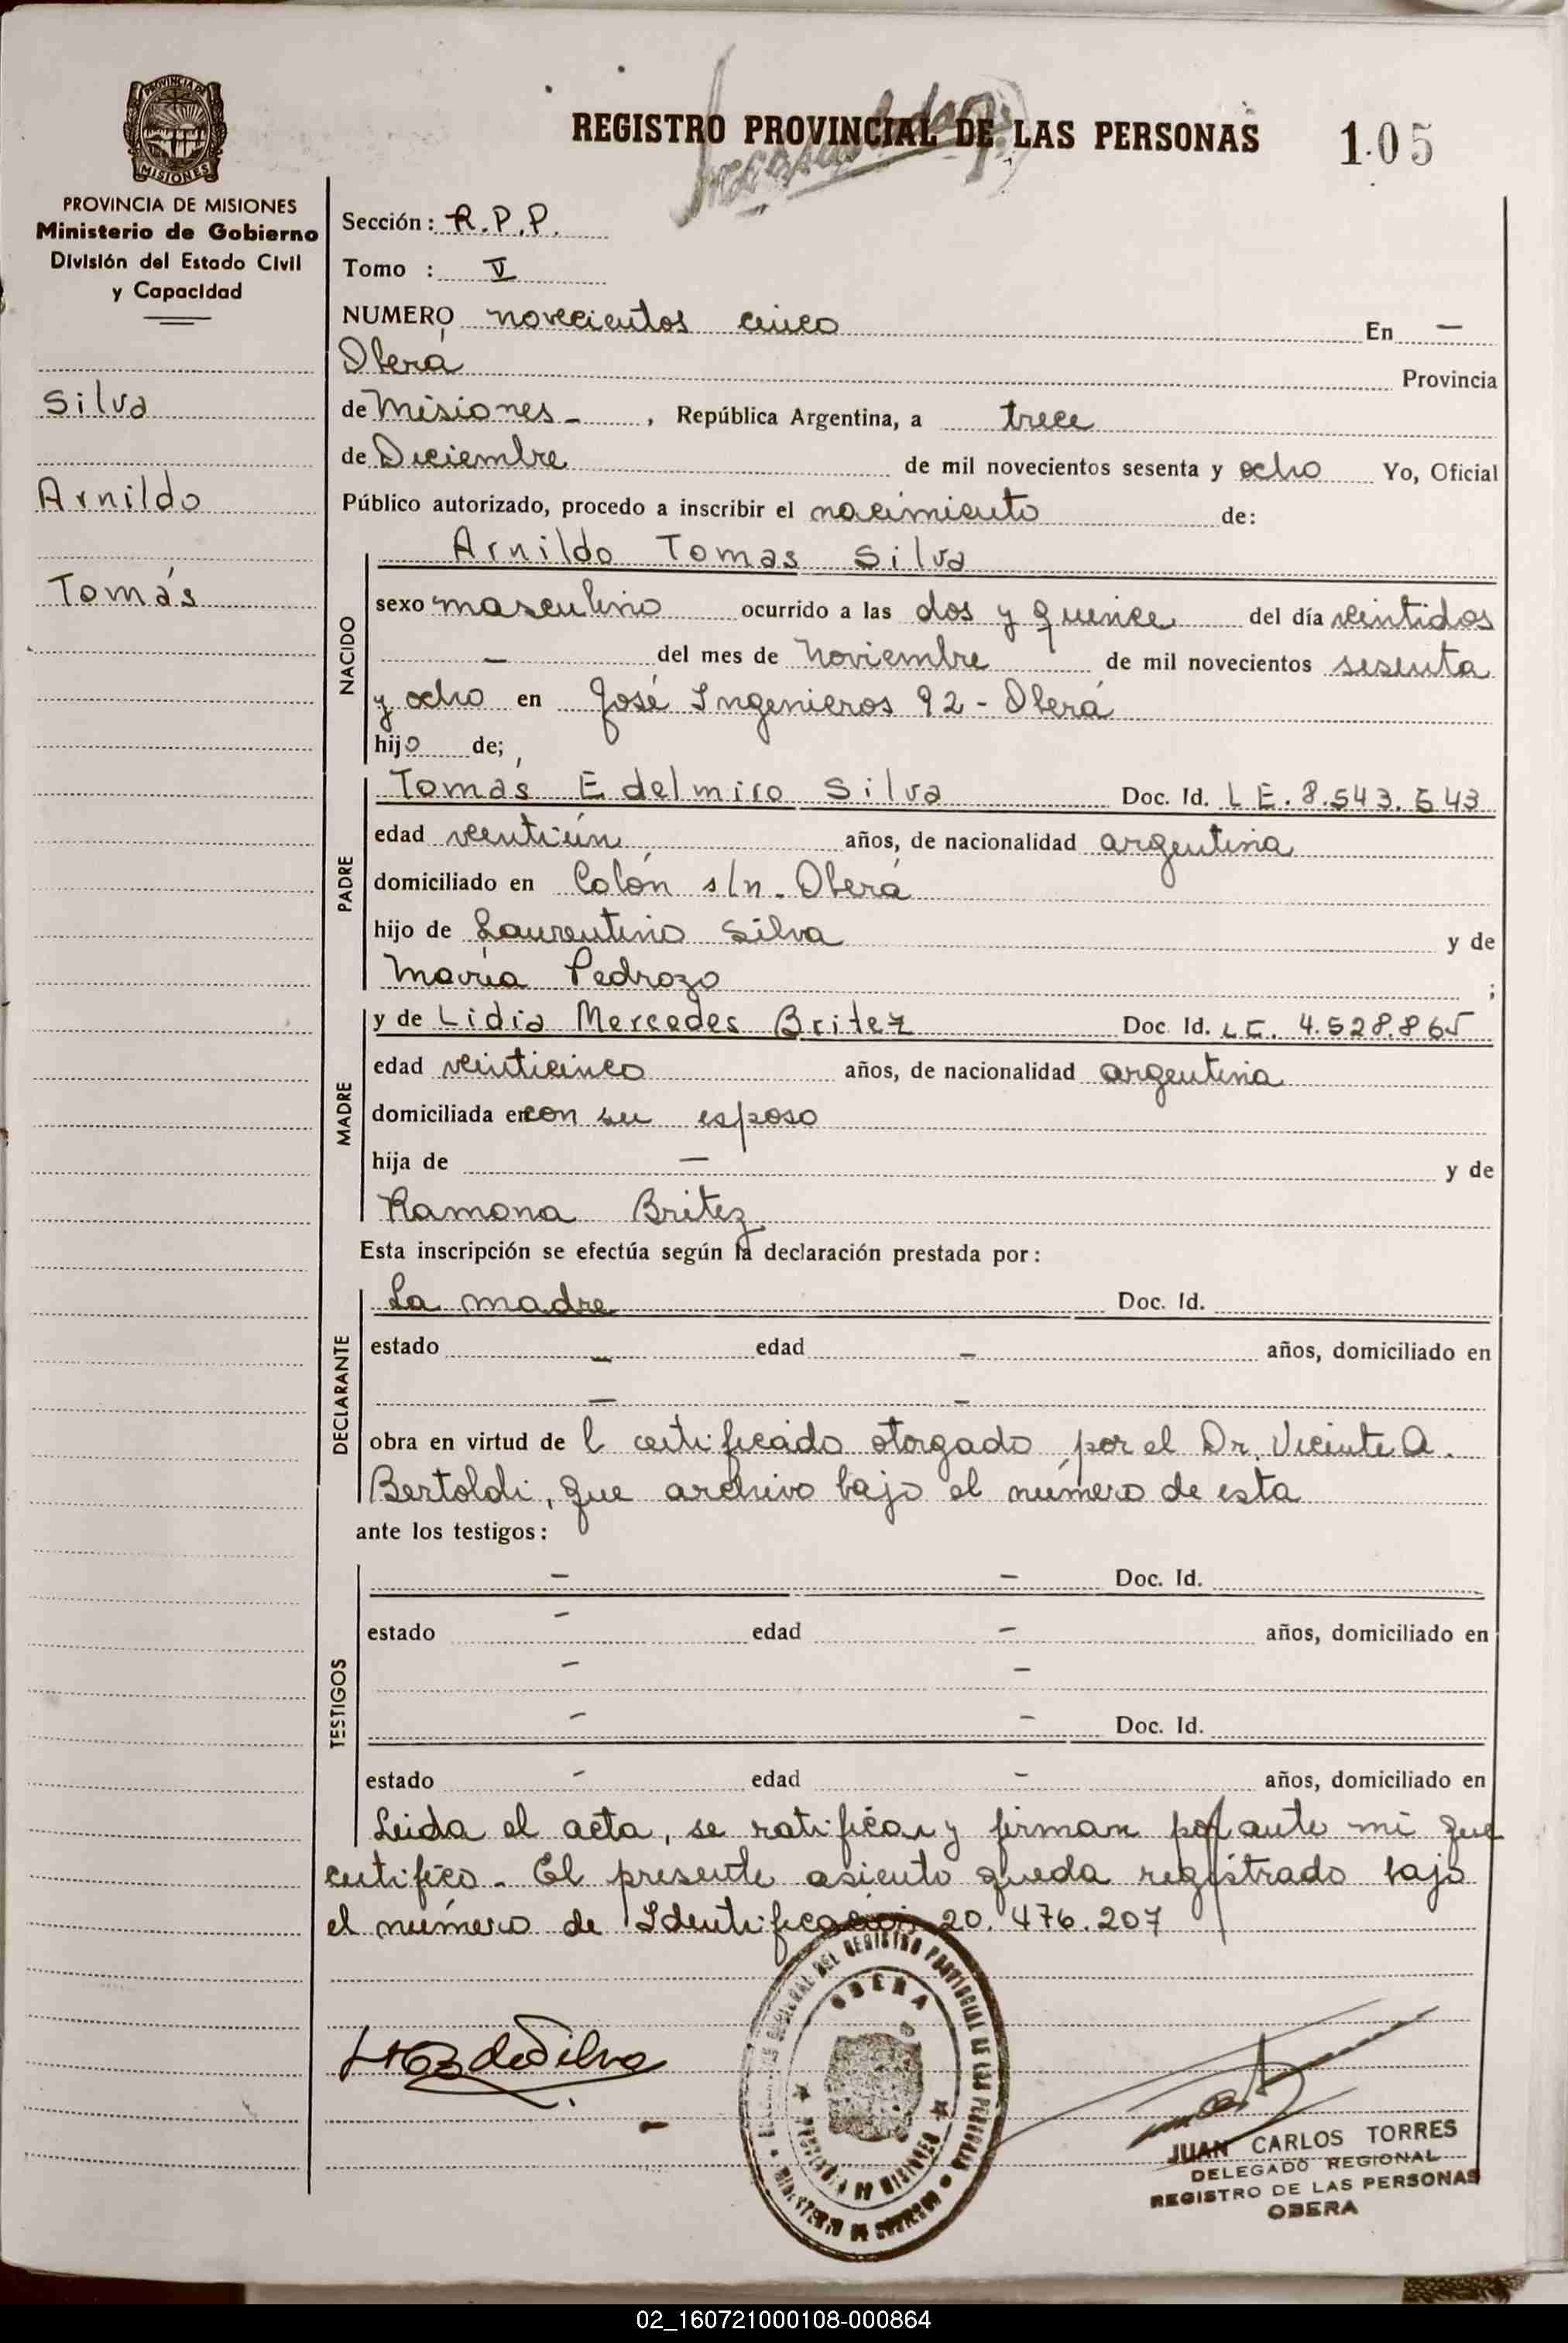 REGISTRO PROVINCIAL DE LAS PERSONAS 105
PROVINCIA DE
MISIONES
PROVINCIA DE MISIONES
Ministerio de Gobierno
División del Estado Civil
y Capacidad
Silva
Arnildo
Tomás
Sección: R.P.P.
Tomo : V
NUMERO novecientos cinco En —
Oberá Provincia
de Misiones - , República Argentina, a trece
de Diciembre de mil novecientos sesenta y ocho Yo, Oficial
Público autorizado, procedo a inscribir el nacimiento de:
NACIDO
Arnildo Tomas Silva
sexo masculino ocurrido a las dos y quince del día veintidos
— del mes de Noviembre de mil novecientos sesenta
y ocho en José Ingenieros 92 - Oberá
hijo de;
PADRE
Tomás Edelmiro Silva Doc. Id. L E. 8.543.543
edad veintiún años, de nacionalidad argentina
domiciliado en Colón s/n. Oberá
hijo de Laurentino Silva y de
María Pedrozo ;
MADRE
y de Lidia Mercedes Britez Doc. Id. L C. 4.528.865
edad veinticinco años, de nacionalidad argentina
domiciliada en con su esposo
hija de — y de
Ramona Britez
Esta inscripción se efectúa según la declaración prestada por:
DECLARANTE
La madre Doc. Id.
estado — edad — años, domiciliado en
— —
obra en virtud de l certificado otorgado por el Dr. Vicente A.
Bertoldi, que archivo bajo el número de esta
ante los testigos:
TESTIGOS
— — Doc. Id.
estado — edad — años, domiciliado en
— —
— — Doc. Id.
estado — edad — años, domiciliado en
Leida el acta, se ratifican y firman por ante mi que
certifico. El presente asiento queda registrado bajo
el número de Identificación 20.476.207
de Silva
DEL REGISTRO PROVINCIAL DE LAS PERSONAS
OBERA
PROVINCIA DE MISIONES
MINISTERIO DE GOBIERNO
JUAN CARLOS TORRES
DELEGADO REGIONAL
REGISTRO DE LAS PERSONAS
OBERA
02_160721000108-000864